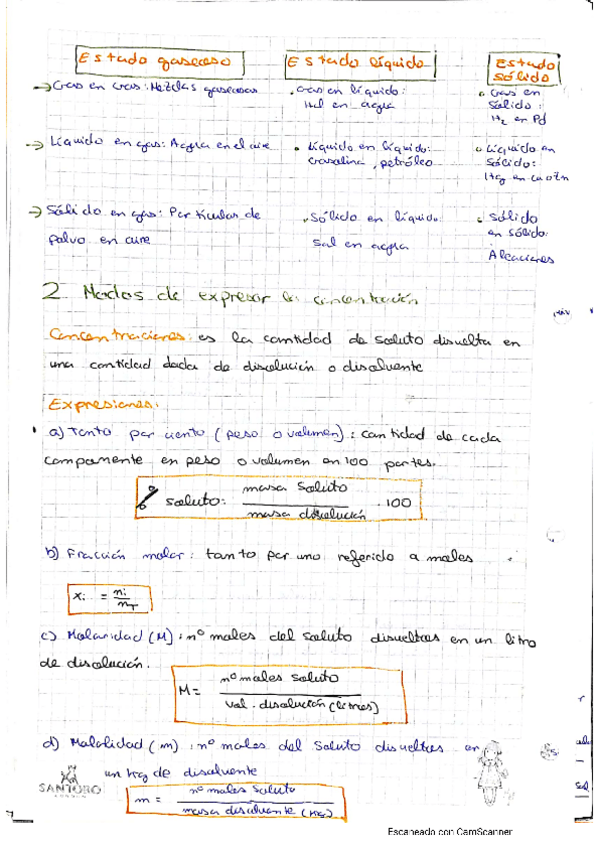 Estado gaseoso Estado líquido Estado sólido
→ Gas en Gas: Mezclas gaseosas
• Gas en líquido:
Hcl en agua
• Gas en
sólido:
H₂ en Pd
→ Líquido en gas: Agua en el aire
• Líquido en líquido:
Gasolina, petróleo
• Líquido en
sólido:
Hg en
→ Sólido en gas: Partículas de
polvo en aire
• Sólido en líquido
sal en agua
• sólido
en sólido:
Aleaciones
2 Modos de expresar la concentración
Concentraciones: es la cantidad de soluto disuelta en
una cantidad dada de disolución o disolvente
Expresiones:
a) Tanto por ciento (peso o volumen): cantidad de cada
componente en peso o volumen en 100 partes.
% soluto: masa soluto / masa disolución . 100
b) Fracción molar: tanto por uno referido a moles
xi = ni / nT
c) Molaridad (M): nº moles del soluto disueltos en un litro
de disolución.
M = nº moles soluto / vol. disolución (litros)
d) Molalidad (m): nº moles del soluto disueltos en
un kg de disolvente
m = nº moles soluto / masa disolvente (kg)
SANTORO
Escaneado con CamScanner